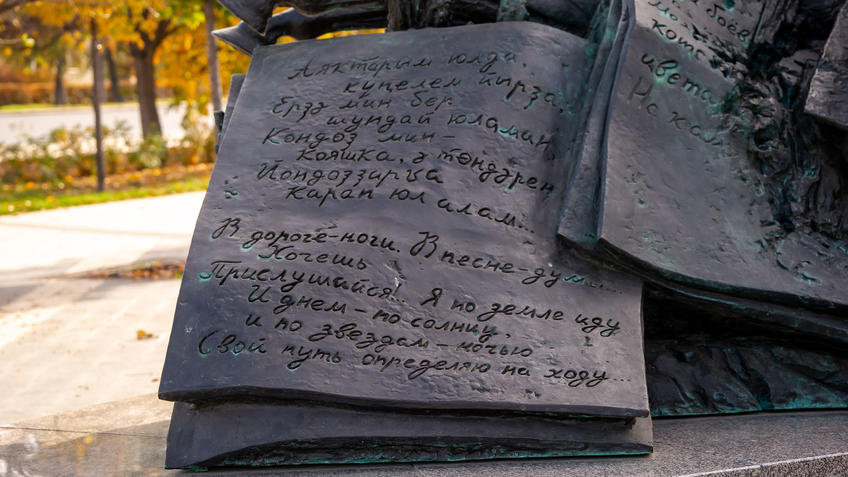 Аяктарым юлда,
күңелем йырҙа.
Ерҙә мин бер
шундай юламан,
Көндөҙ мин–
кояшка, ә төндәрен
Йондоҙҙарға
карап юл алам...
В дороге–ноги. В песне–думы...
Хочешь
Прислушайся!.. Я по земле иду
И днем–по солнцу,
и по звездам–ночью
Свой путь определяю на ходу...
боев
кото
цвета
На кам